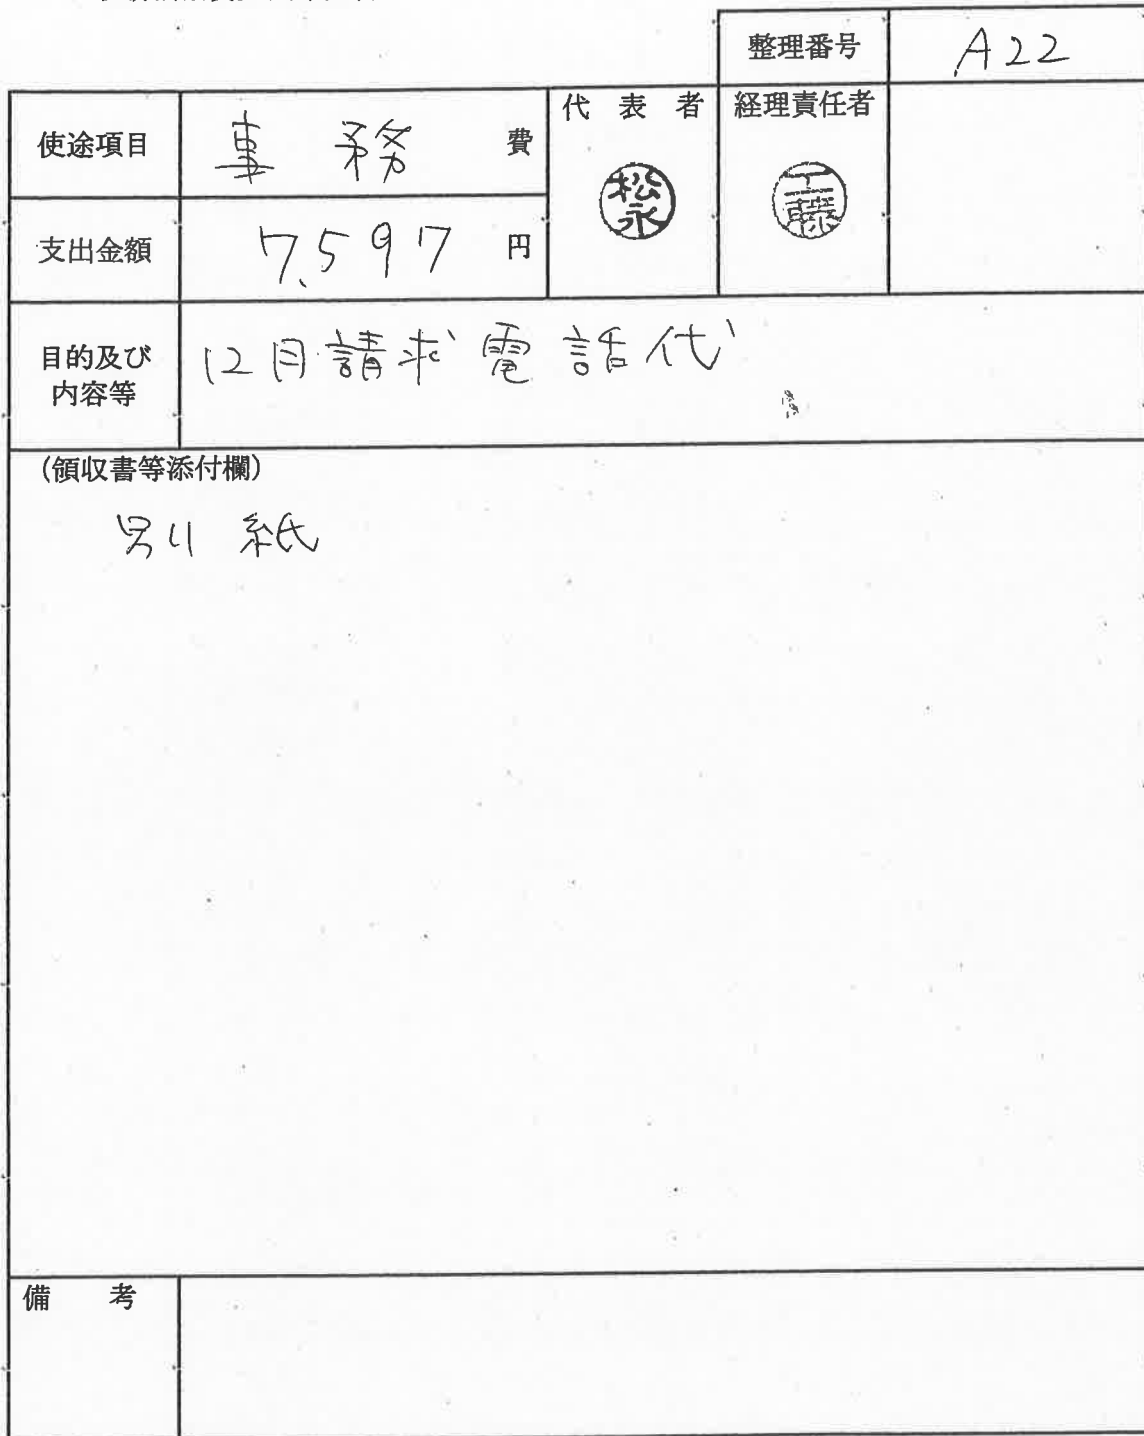 整理番号 A22
使途項目 事務費 代表者 経理責任者
松永 工藤
支出金額 7,597円
目的及び内容等 12月請求電話代
(領収書等添付欄)
別紙
備考